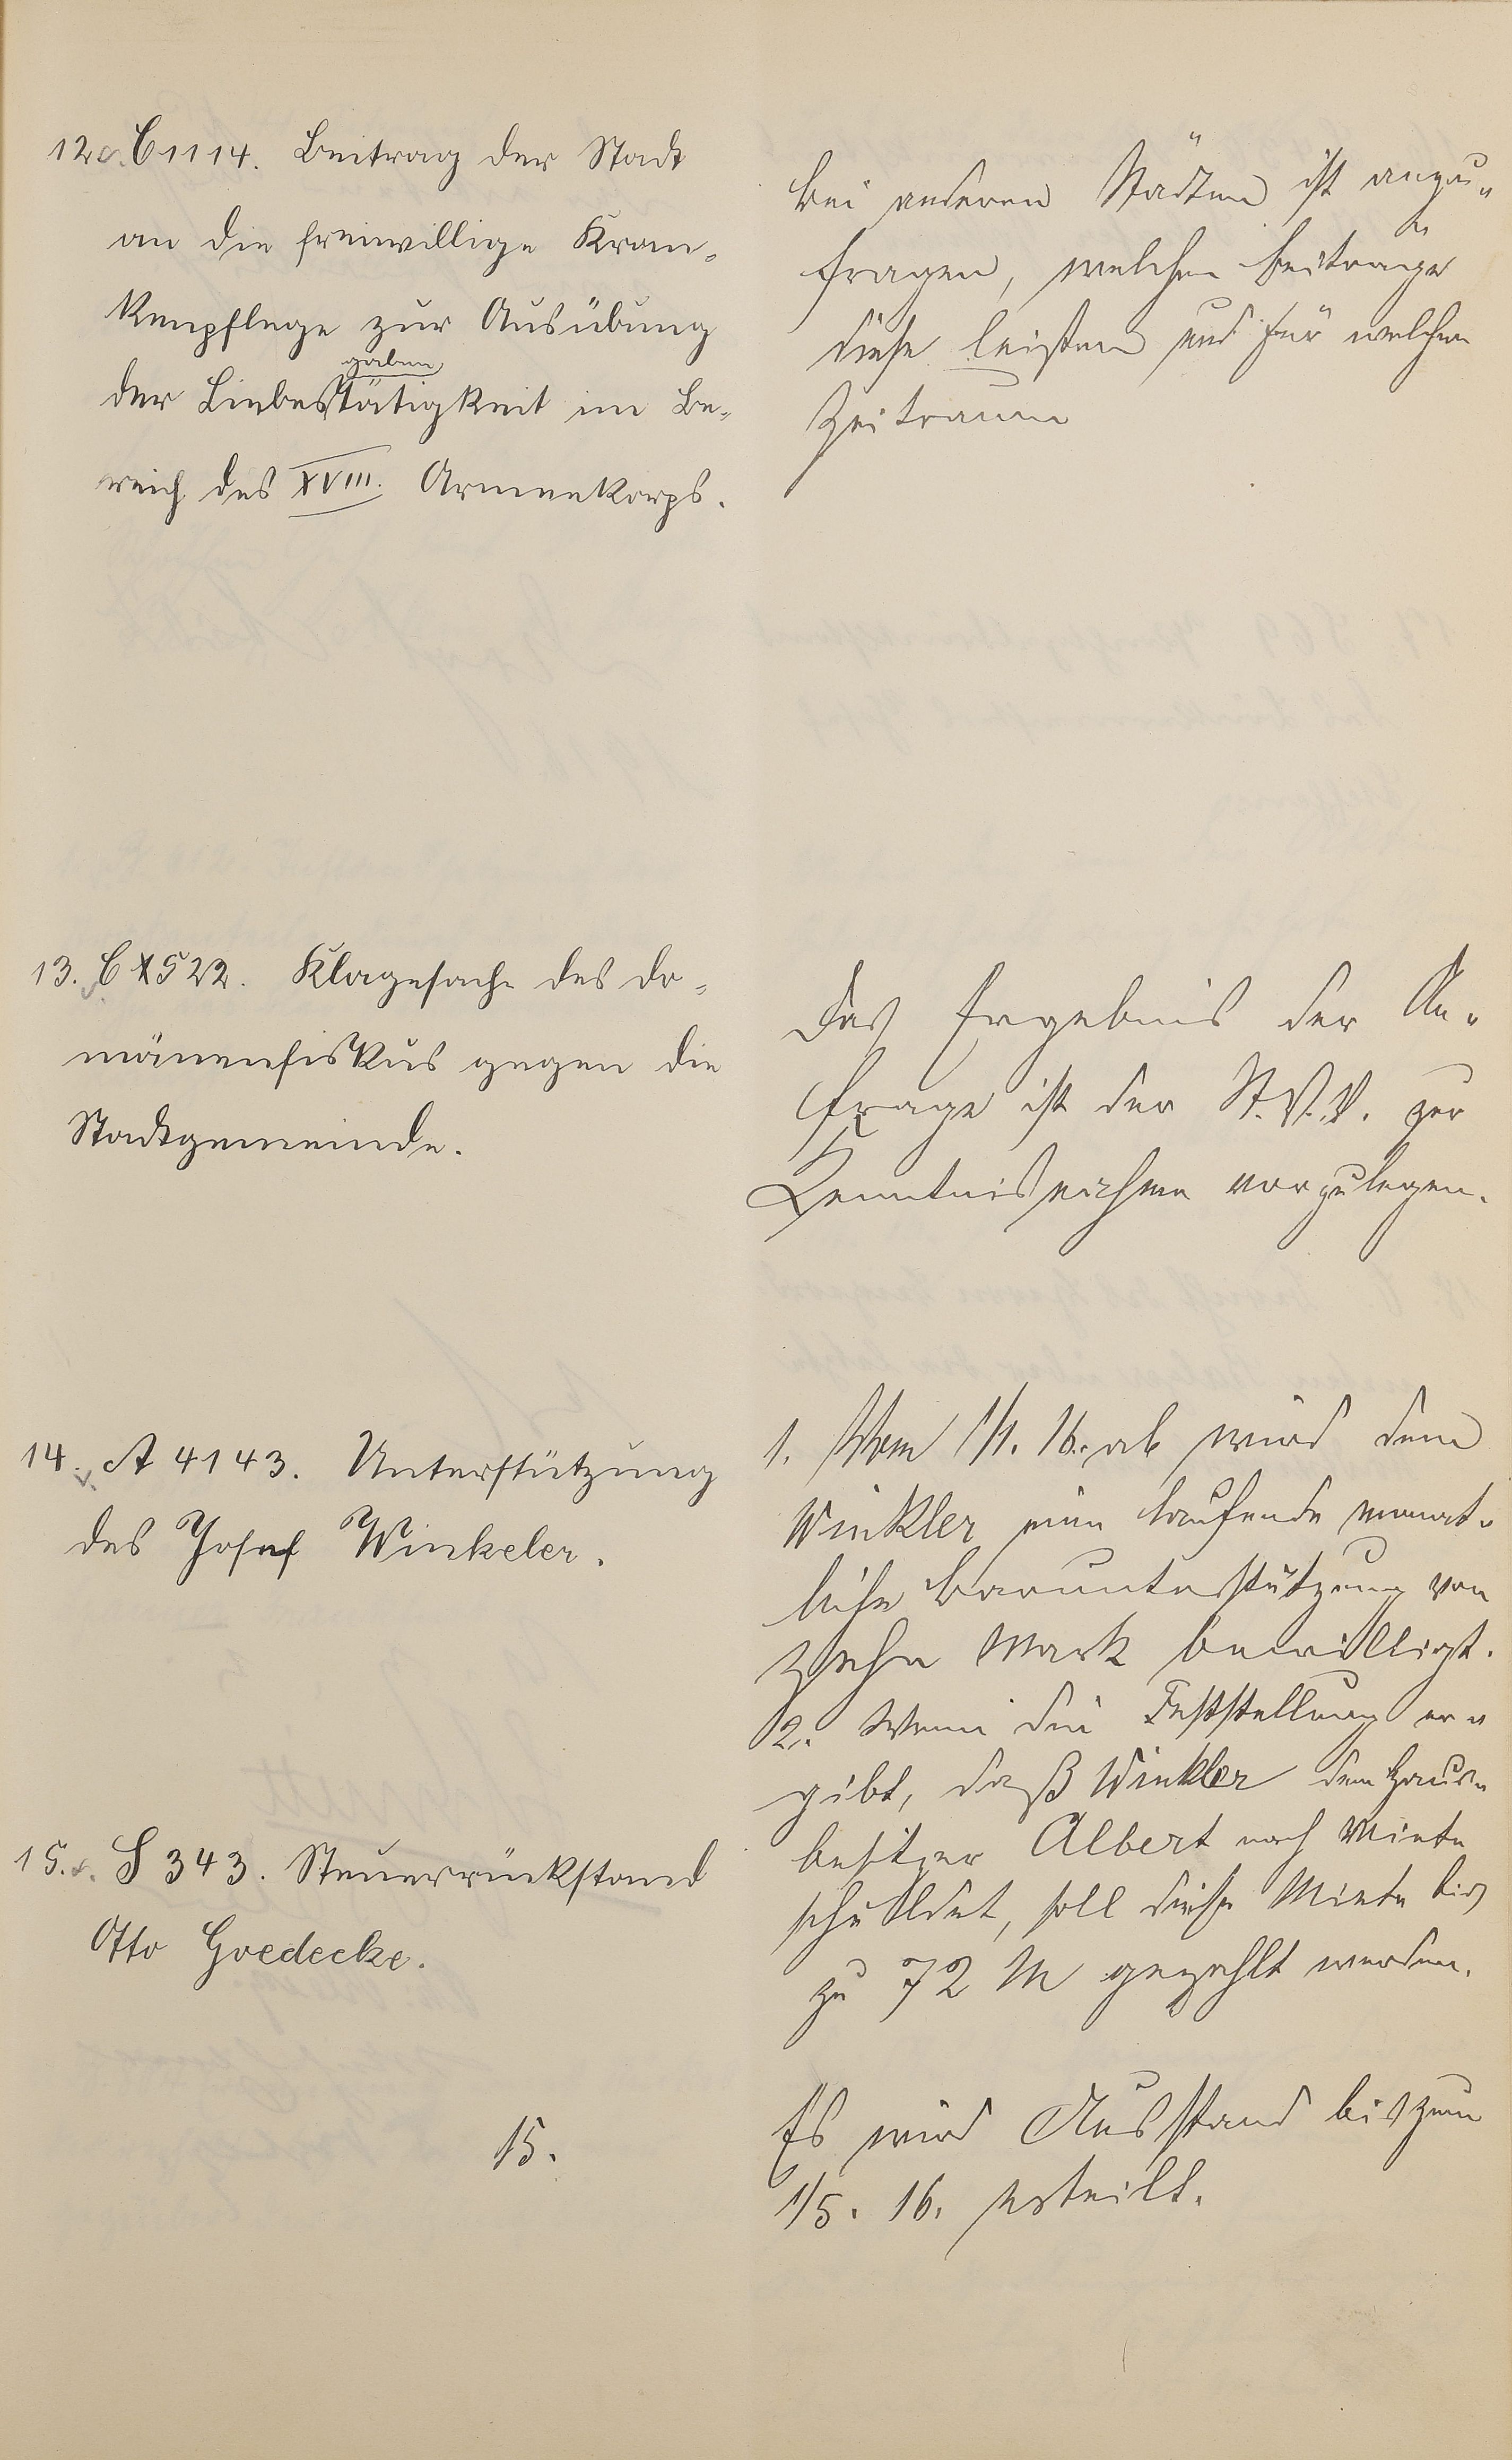 12. C 1114. Beitrag der Stadt
an die freiwillige Kran-
kenpflege zur Ausübung
gaben
der Liebestätigkeit im Be-
reich des XVIII. Armeekorps.
Bei anderen Städten ist anzu-
fragen, welchen Beitrag
diese leisten und für welchen
Zeitraum
13. C 1522. Klagesache des Do-
mänenfiskus gegen die
Stadtgemeinde.
Das Ergebnis der An-
frage ist der St.V.V. zur
Kenntnisnahme vorzulegen.
14. A 4143. Unterstützung
des Josef Winkeler.
1. Vom 1/1. 16. ab wird dem
Winkler eine laufende monat-
liche Barunterstützung von
zehn Mark bewilligt.
2. Wenn die Feststellung er-
gibt, daß Winkler dem Haus-
besitzer Albert noch Miete
schuldet, soll diese Miete bis
zu 72 M gezahlt werden.
15. S 343. Steuerrückstand
Otto Goedecke.
15.
Es wird Ausstand bis zum
1/5. 16. erteilt.